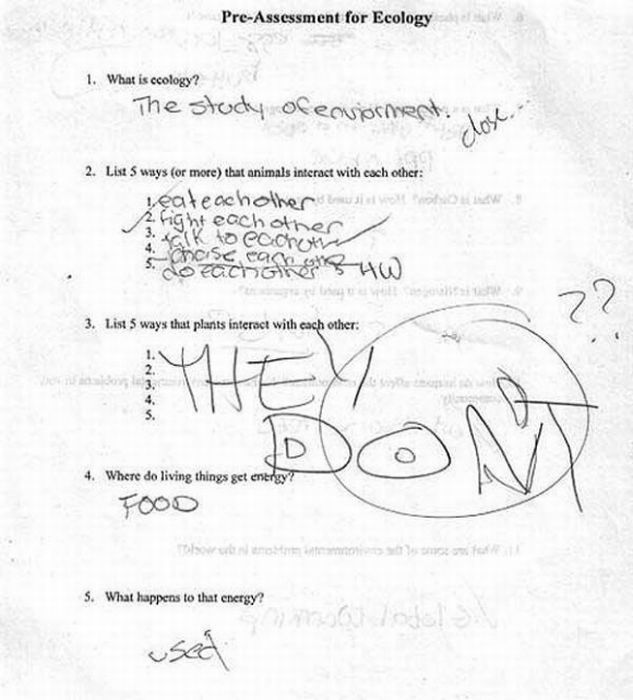 Pre-Assessment for Ecology
1. What is ecology?
The study of enviorment.
close...
2. List 5 ways (or more) that animals interact with each other:
1. eat each other
2. fight each other
3. talk to eachother
4. chase each other
5. do each other's HW
??
3. List 5 ways that plants interact with each other:
1.
2.
3.
4.
5.
THEY
DON'T
4. Where do living things get energy?
FOOD
5. What happens to that energy?
used